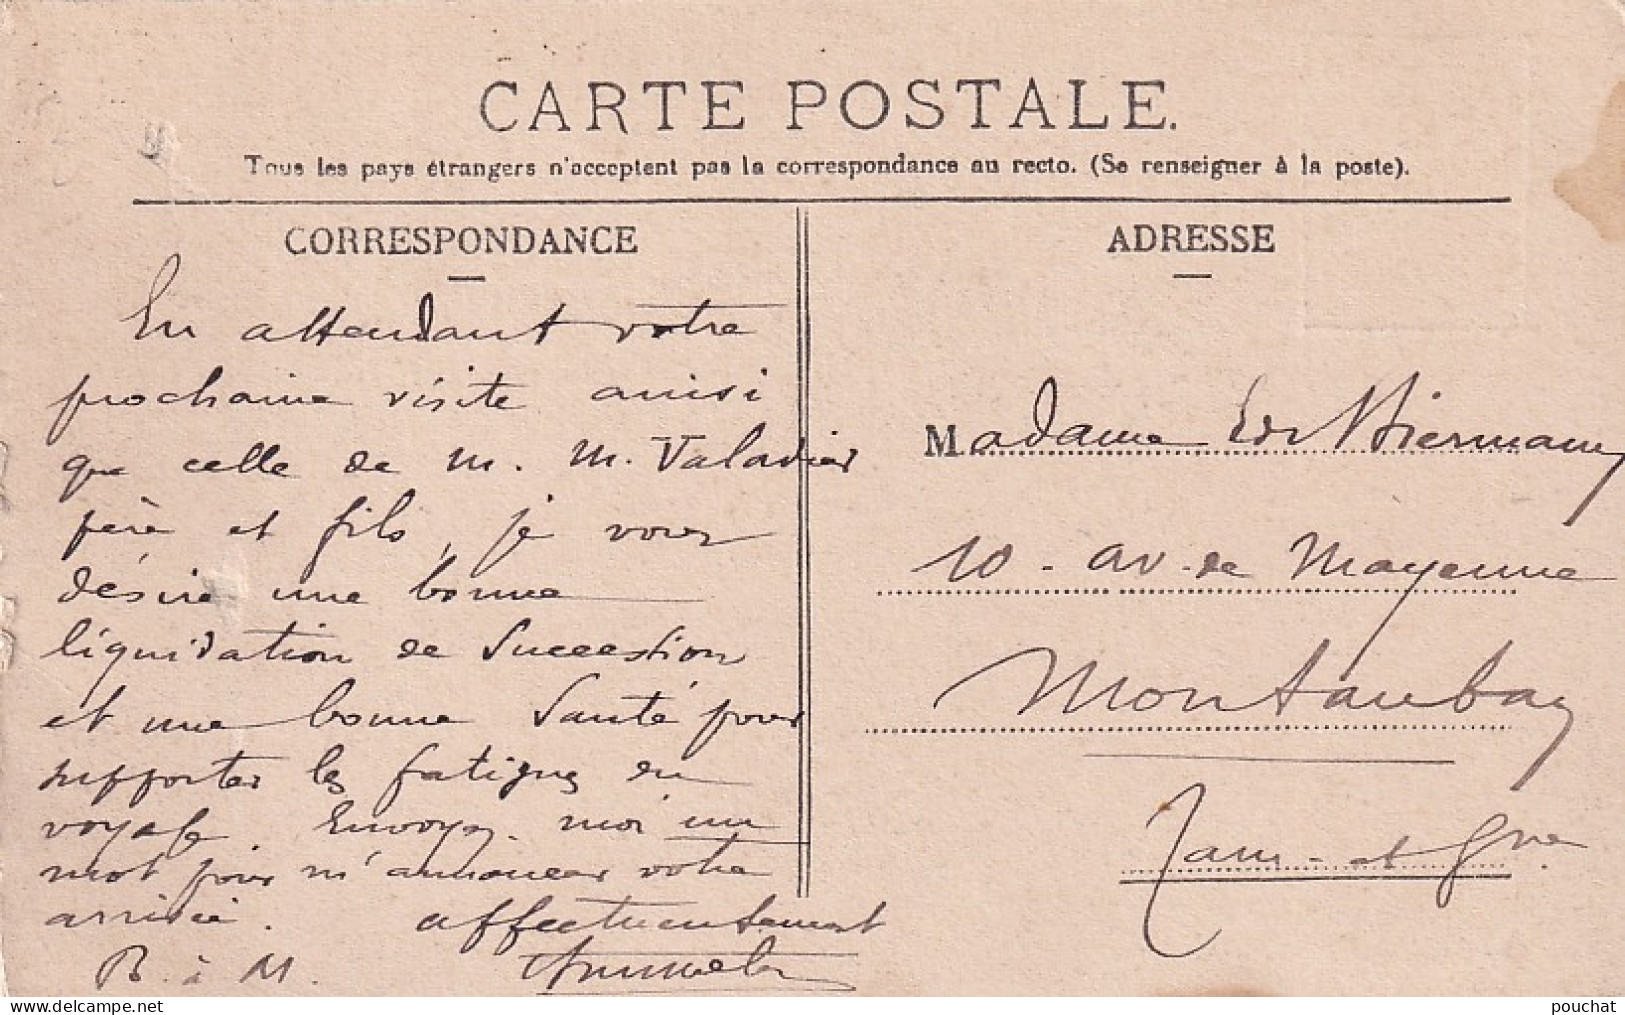 CARTE POSTALE.
Tous les pays étrangers n'acceptent pas la correspondance au recto. (Se renseigner à la poste).
CORRESPONDANCE
En attendant votre
prochaine visite ainsi
que celle de M. M. Valadier
père et fils, je vous
désire une bonne
liquidation de Succession
et une bonne Santé pour
supporter les fatigues du
voyage. Envoyez-moi un
mot pour m'annoncer votre
arrivée. affectueusement
B. à M.
ADRESSE
Madame
10 - av. de Mayenne
Montauban
Tarn-et-Gne
pouchat